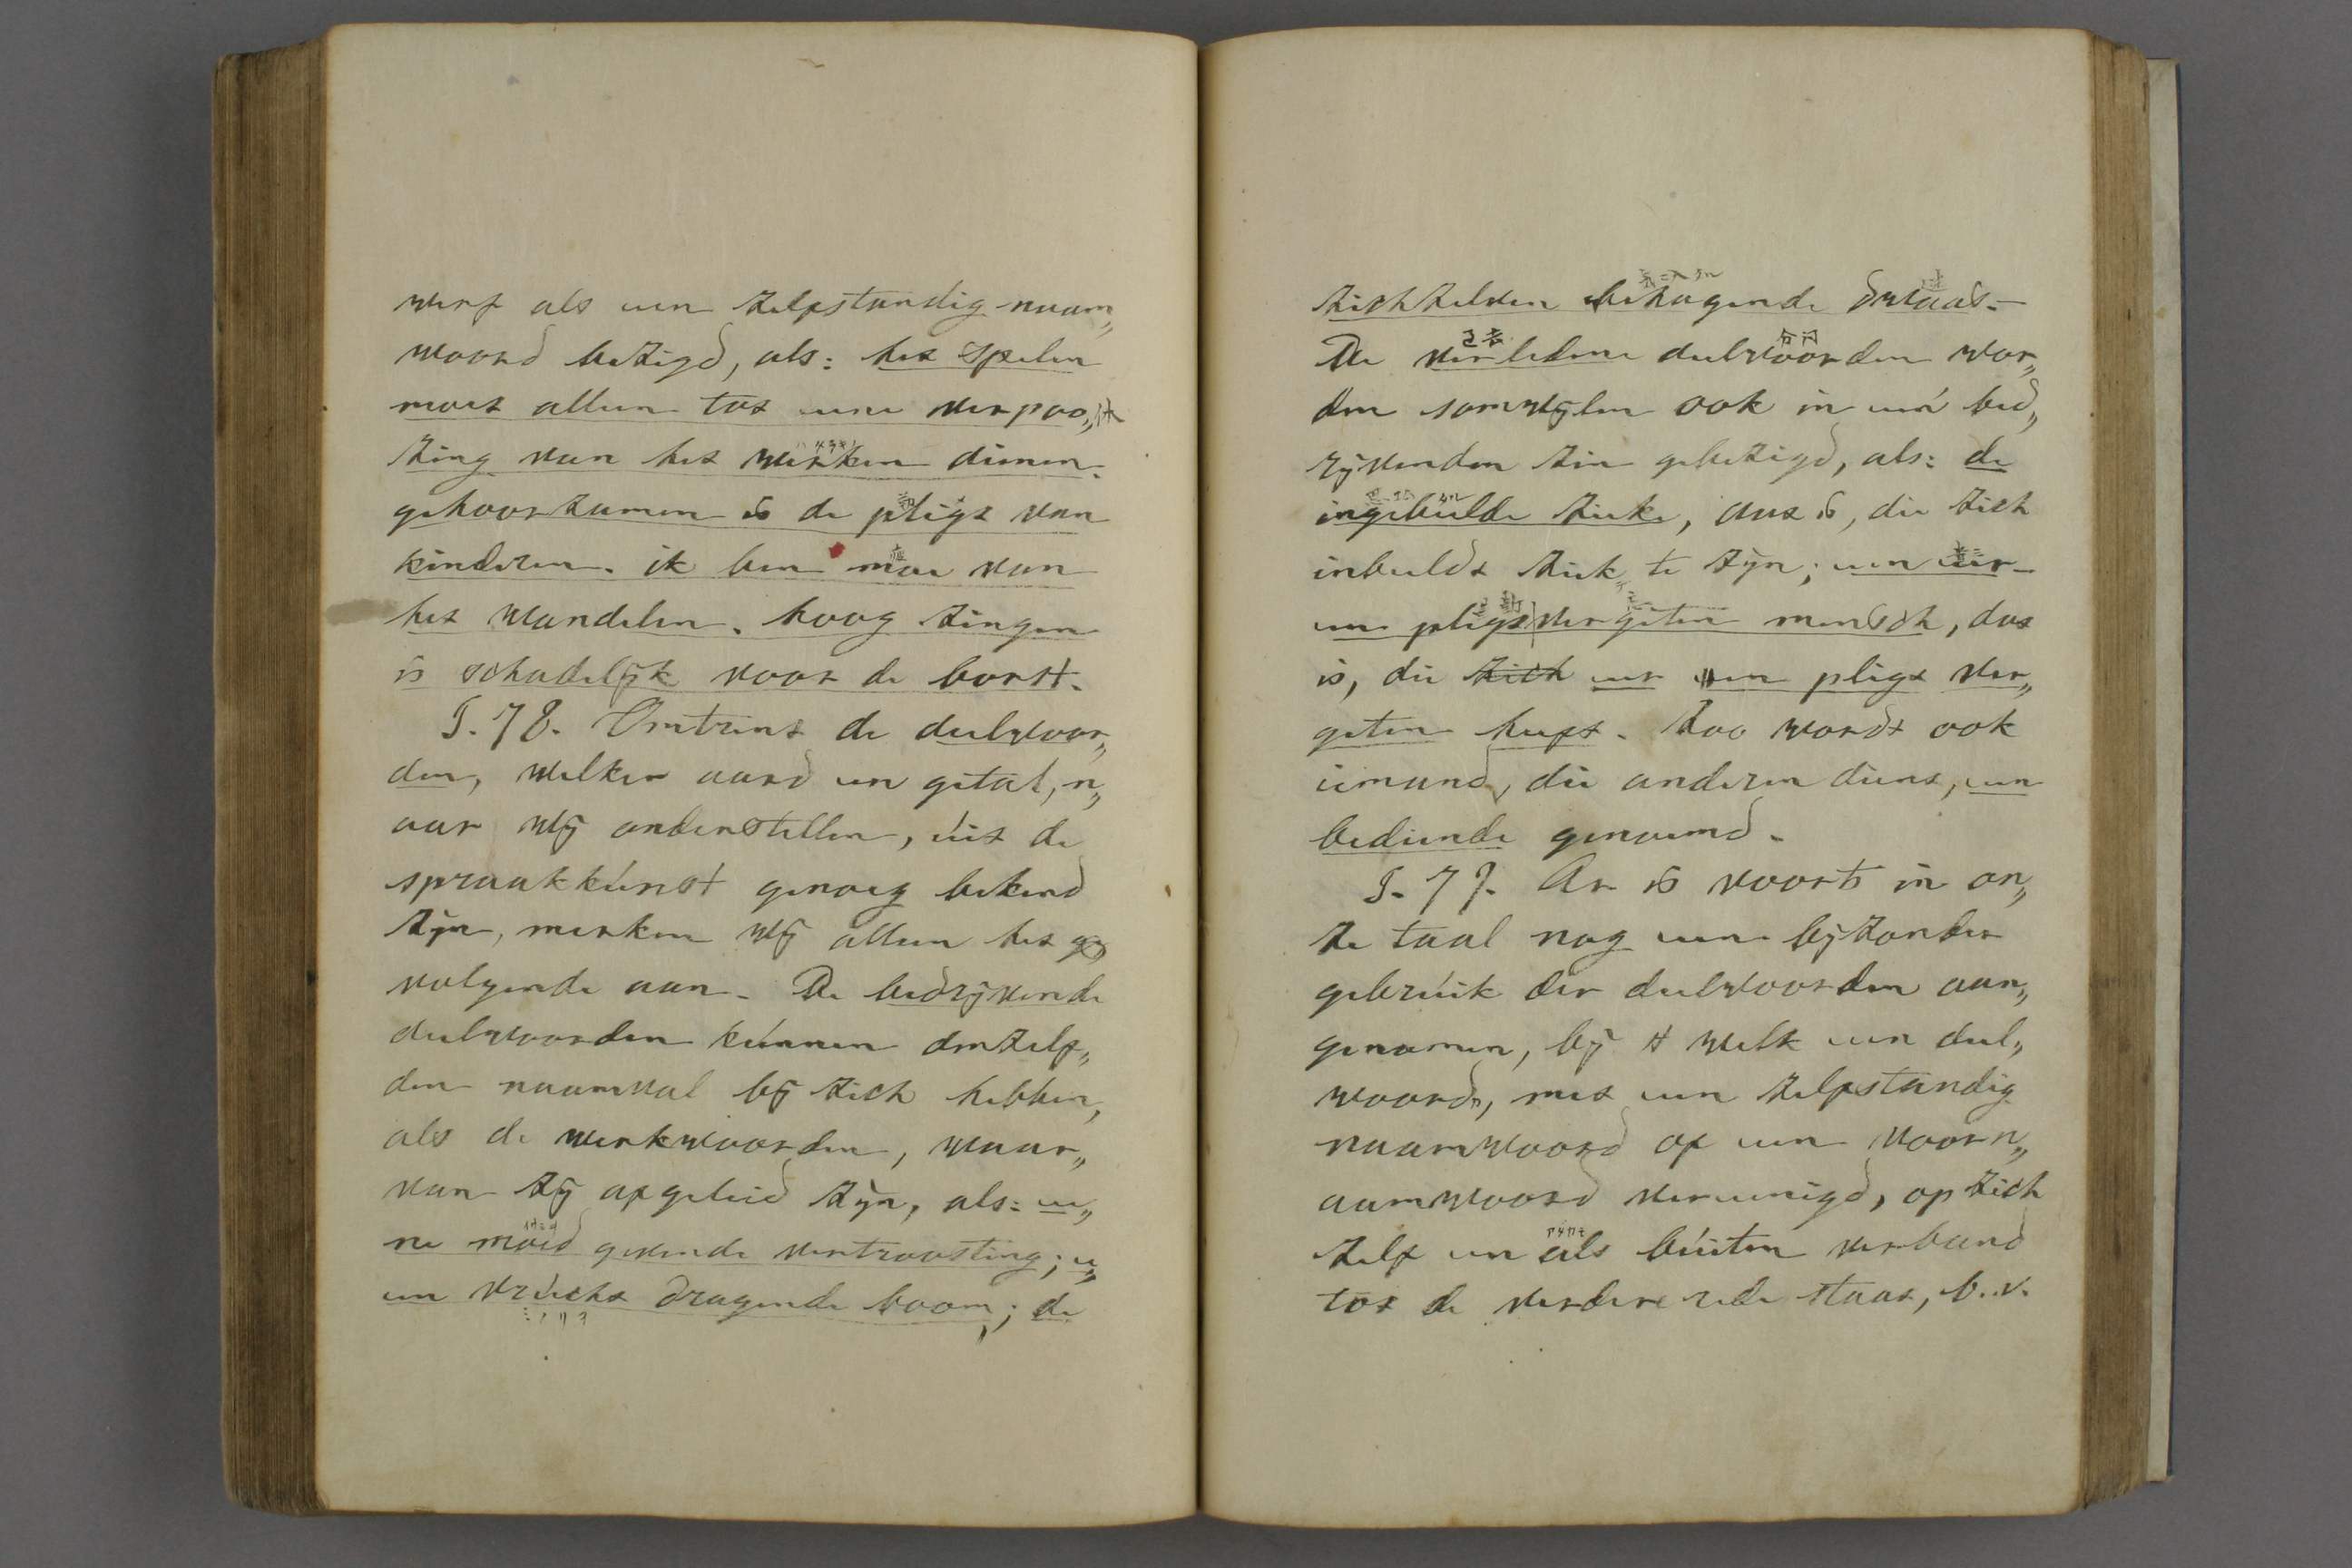 werf als een zelfstandig naam„
woord bezigd, als: het spelen
moet alleen tot eene verpoo„
zing van het werken dienen.
gehoorzamen is de pligt van
kinderen. ik ben moe van
het wandelen. hoog zingen
is schadelijk voor de borst.
§. 78. Omtrent de deelwoor„
den, welker aard en getal, n„
aar wij onderstellen, uit de
spraakkunst genoeg bekend
zijn, merken wij alleen het
volgende aan. De bedrijvende
deelwoorden kunnen denzelf„
den naamval bij zich hebben,
als de werkwoorden, waar„
van zij afgeleid zijn, als: ee„
ne moed gevende vertroosting; e„
en vrucht dragende boom; de
zichzelven behagende dwaas.
已去 合同
De verledene deelwoorden wor„
den somwijlen ook in een' bed„
rijvenden zin gebezigd, als: de
ingebeelde zieke, dat is, die zich
inbeeldt ziek te zijn; een eer-
en pligt vergeten mensch, dat
is, die zich eer en pligt ver„
geten heeft. Zoo wordt ook
iemand, die anderen dient, een
bediende genoemd.
§. 79. Er is voorts in on„
ze taal nog eene bijzonder
gebruik der deelwoorden aan„
genomen, bij 't welk een deel„
woord, met een zelfstandig
naamwoord of een voorn„
aamwoord vereenigd, op zich
zelf en als buiten verband
tot de verdere rede staat, b.v.